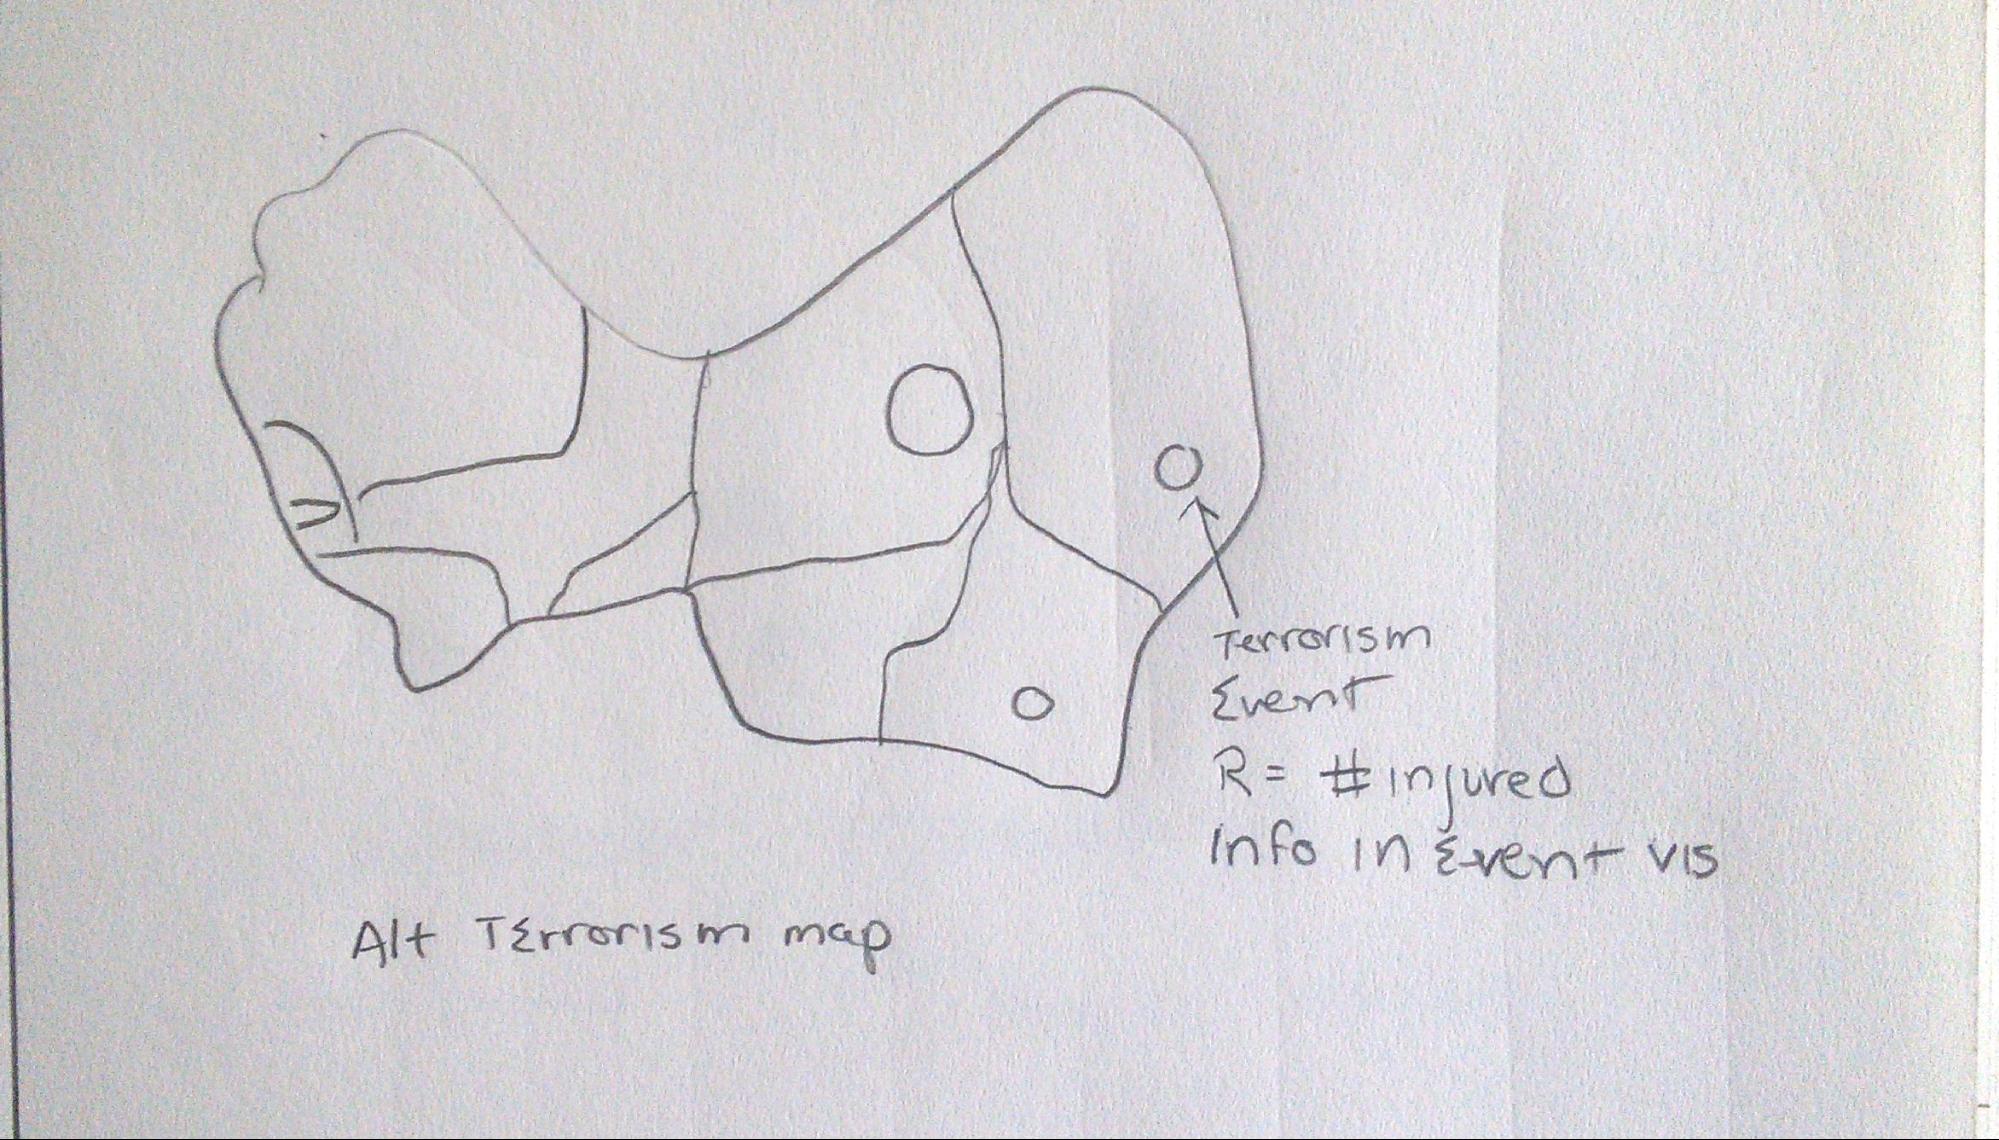 Terrorism
Event
R= # injured
Info in Event vis
Alt Terrorism map